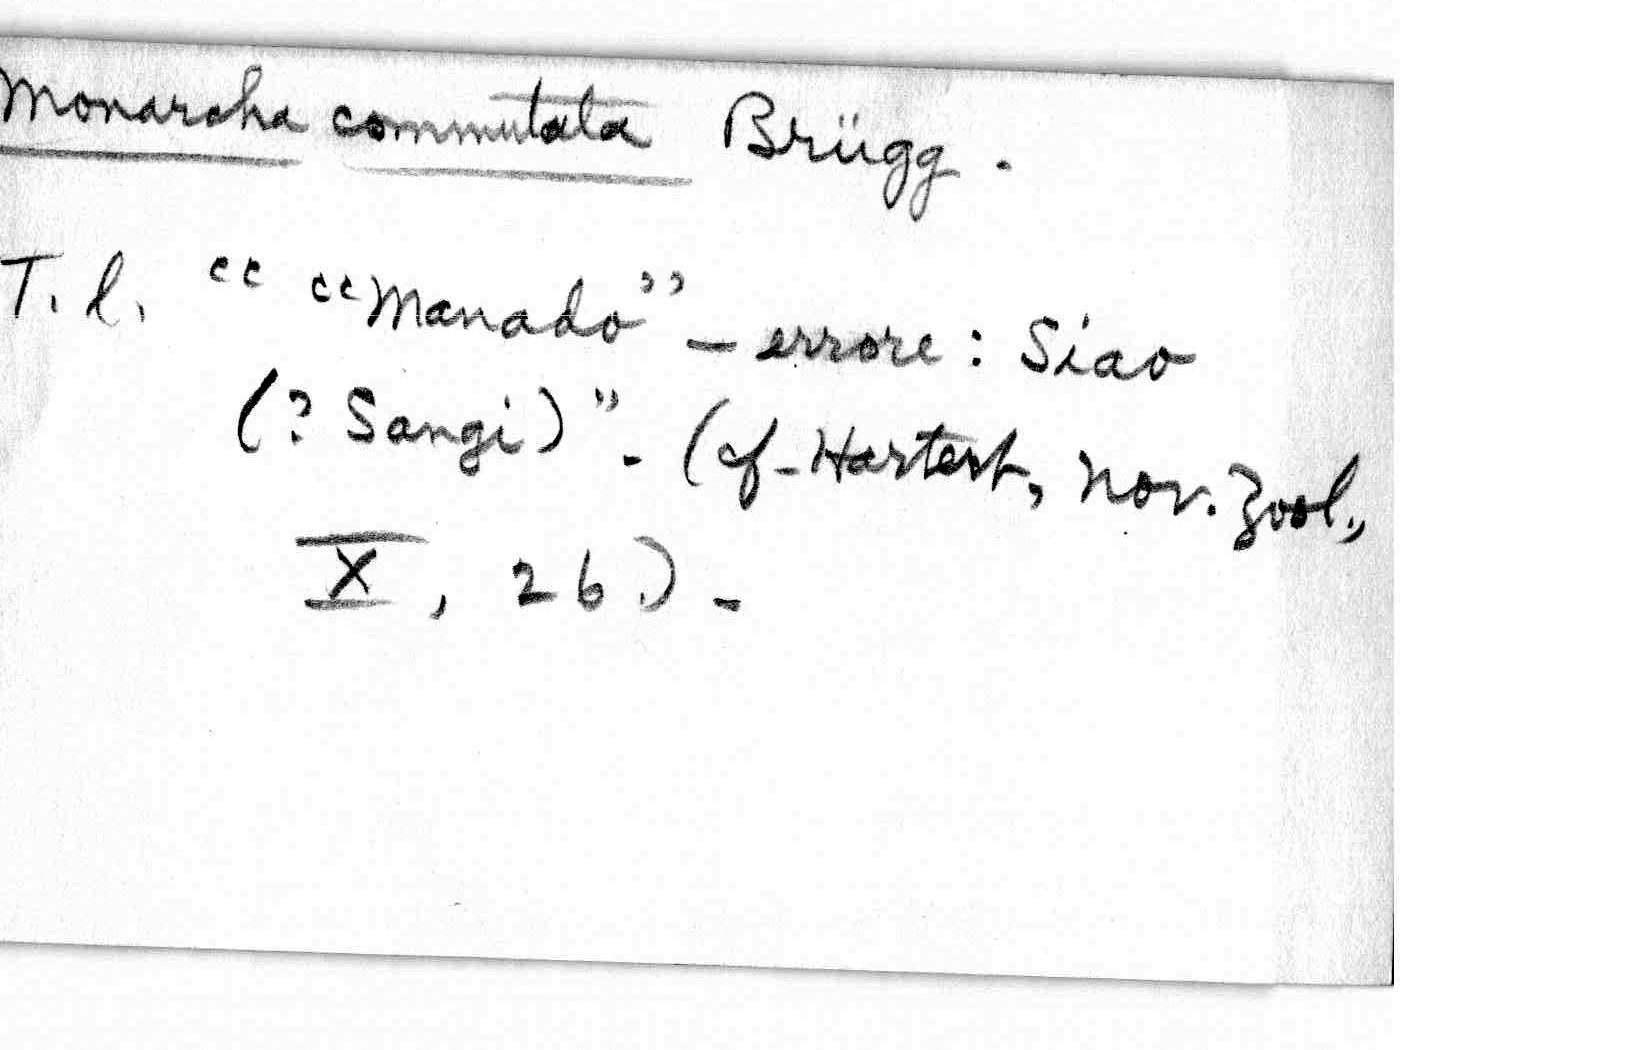 Monarcha commutata Brügg.
T. l. " "Manado" - errore: Siao
(? Sangi)". (cf. Hartert, Nov. Zool.,
X, 26).